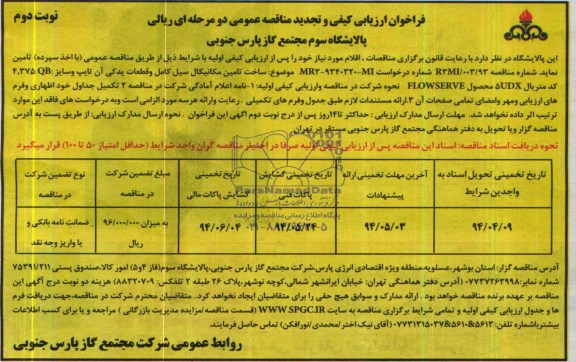 نوبت دوم
فراخوان ارزیابی کیفی و تجدید مناقصه عمومی دو مرحله ای ریالی
پالایشگاه سوم مجتمع گاز پارس جنوبی
این پالایشگاه در نظر دارد با رعایت قانون برگزاری مناقصات ، اقلام مورد نیاز خود را پس از ارزیابی کیفی اولیه با شرایط ذیل از طریق مناقصه عمومی (با اخذ سپرده) تامین
نماید. شماره مناقصه R3MI/003/93 شماره درخواست MR3-934032-MI موضوع: ساخت تامین مکانیکال سیل کامل وقطعات یدکی آن تایپ وسایز :4,375 QB
کد متریال 5UDX محصول FLOWSERVE نحوه شرکت در مناقصه وارزیابی کیفی اولیه: 1-نامه اعلام آمادگی شرکت در مناقصه 2 تکمیل جداول خود اظهاری وفرم
های ارزیابی ومهر وامضای تمامی صفحات آن 3.ارائه مستندات لازم طبق جدول وفرم های تکمیلی . رعایت وارائه هرسه مورد الزامی است وبه درخواست های فاقد این موارد
ترتیب اثر داده نخواهد شد. مهلت ارسال مدارک ارزیابی : حداکثر تا14روز پس از درج نوبت دوم آگهی این فراخوان . نحوه ارسال مدارک ارزیابی: از طریق پست به آدرس
مناقصه گزار ویا تحویل به دفتر هماهنگی مجتمع گاز پارس جنوبی مستقر در تهران
نحوه دریافت اسناد مناقصه: اسناد این مناقصه پس از ارزیابی کیفی اولیه صرفا در اختیار مناقصه گران واجد شرایط (حداقل امتیاز 50 تا 100) قرار میگیرد
تاریخ تخمینی تحویل اسناد به واجدین شرایط
آخرین مهلت تخمینی ارائه پیشنهادات
تاریخ تخمینی گشایش پاکات فنی
تاریخ تخمینی گشایش پاکات مالی
مبلغ تضمین شرکت در مناقصه
نوع تضمین شرکت در مناقصه
94/04/09
94/05/03
94/05/24
94/06/04
به میزان 96/000/000 ریال
ضمانت نامه بانکی و یا واریز وجه نقد
ParsNamadData
پایگاه اطلاع رسانی مناقصه و مزایده
آدرس مناقصه گزار: استان بوشهر،عسلویه،منطقه ویژه اقتصادی انرژی پارس،شرکت مجتمع گاز پارس جنوبی،پالایشگاه سوم(فاز 4و5) امور کالا،صندوق پستی 75391/211
شماره نمابر:07737263998 (آدرس دفتر هماهنگی تهران: خیابان ایرانشهر شمالی،کوچه نوشهر،پلاک 26 طبقه 2 تلفکس: 88832070۹) هزینه دو نوبت درج آگهی این
مناقصه بر عهده برنده مناقصه خواهد بود . ارائه مدارک و سوابق هیچ حقی را برای متقاضیان ایجاد نخواهد کرد. متقاضیان محترم شرکت در مناقصه،جهت دریافت فرم
ها و جدول ارزیابی کیفی اولیه و تمامی شرایط برگزاری مناقصه به سایت WWW.SPGC.IR (قسمت مناقصه /مزایده مدیریت بازرگانی ) مراجعه و یا برای کسب اطلاعات
بیشتر باشماره تلفن: 5613&5610&07731315037 (آقای نیک اختر/محمدی /نورافکن) تماس حاصل فرمایند.
روابط عمومی شرکت مجتمع گاز پارس جنوبی